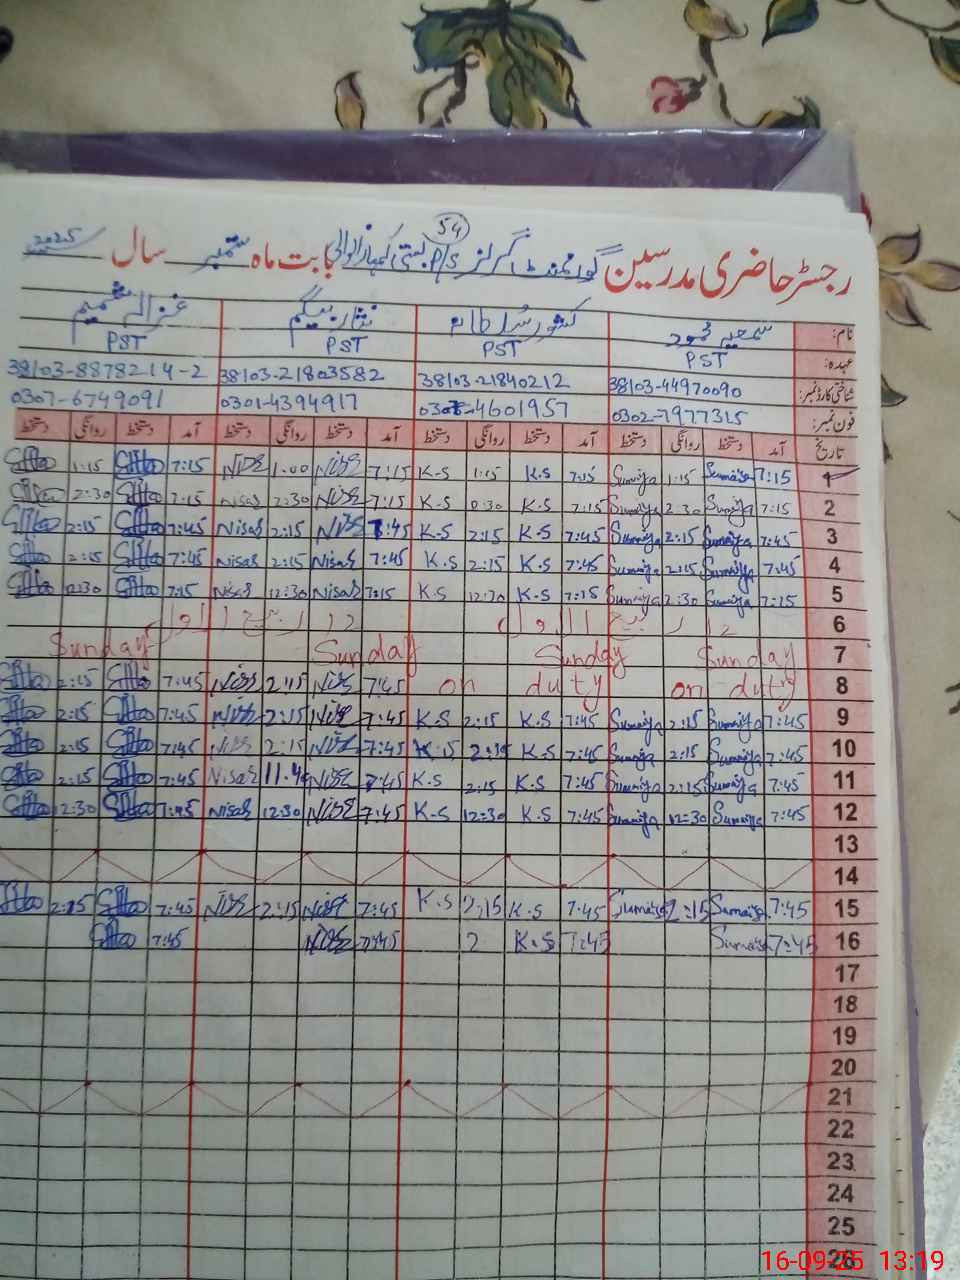 54
رجسٹر حاضری مدرسین گورنمنٹ گرلز P/S بستی بابت ماہ ستمبر سال 2025
نام: سمیرہ محمود کشور سلطانہ نثار بیگم غزالہ شمیم
عہدہ: PST PST PST PST
شناختی کارڈ نمبر: 38103-44970090 38103-21840212 38103-21803582 38103-8878214-2
فون نمبر: 0302-7977315 4601957 0301-4394917 0307-6749091
تاریخ آمد دستخط روانگی دستخط آمد دستخط روانگی دستخط آمد دستخط روانگی دستخط آمد دستخط روانگی دستخط
1 7:15 Sumaiya 1:15 Sumaiya 7:15 K.S 1:15 K.S 7:15 Nisar 1:00 Nisar 7:15 1:15
2 7:15 Sumaiya 2:30 Sumaiya 7:15 K.S K.S 7:15 Nisar 2:30 Nisar 7:15 2:30
3 7:45 Sumaiya 2:15 Sumaiya 7:45 K.S 2:15 K.S 7:45 Nisar 2:15 Nisar 7:45 2:15
4 7:45 Sumaiya 2:15 Sumaiya 7:45 K.S 2:15 K.S 7:45 Nisar 2:15 Nisar 7:45 2:15
5 7:15 Sumaiya 2:30 Sumaiya 7:15 K.S 12:30 K.S 7:15 Nisar 12:30 Nisar 7:15 12:30
6 12 ربیع الاول 12 ربیع الاول
7 Sunday Sunday Sunday Sunday
8 on duty on duty 7:45 Nisar 2:15 Nisar 7:45 2:15
9 7:45 Sumaiya 2:15 Sumaiya 7:45 K.S 2:15 K.S 7:45 Nisar 2:15 Nisar 7:45 2:15
10 7:45 Sumaiya 2:15 Sumaiya 7:45 K.S 7:45 Nisar 2:15 Nisar 7:45 2:15
11 7:45 Sumaiya 2:15 Sumaiya 7:45 K.S 2:15 K.S 7:45 Nisar Nisar 7:45 2:15
12 7:45 Sumaiya 12:30 Sumaiya 7:45 K.S 12:30 K.S 7:45 Nisar 12:30 Nisar 7:45 12:30
13
14
15 7:45 Sumaiya 2:15 Sumaiya 7:45 K.S 2:15 K.S 7:45 Nisar 2:15 Nisar 7:45 2:15
16 7:45 Sumaiya 7:45 K.S 2 7:45 Nisar 7:45
17
18
19
20
21
22
23
24
25
26
16-09-25 13:19